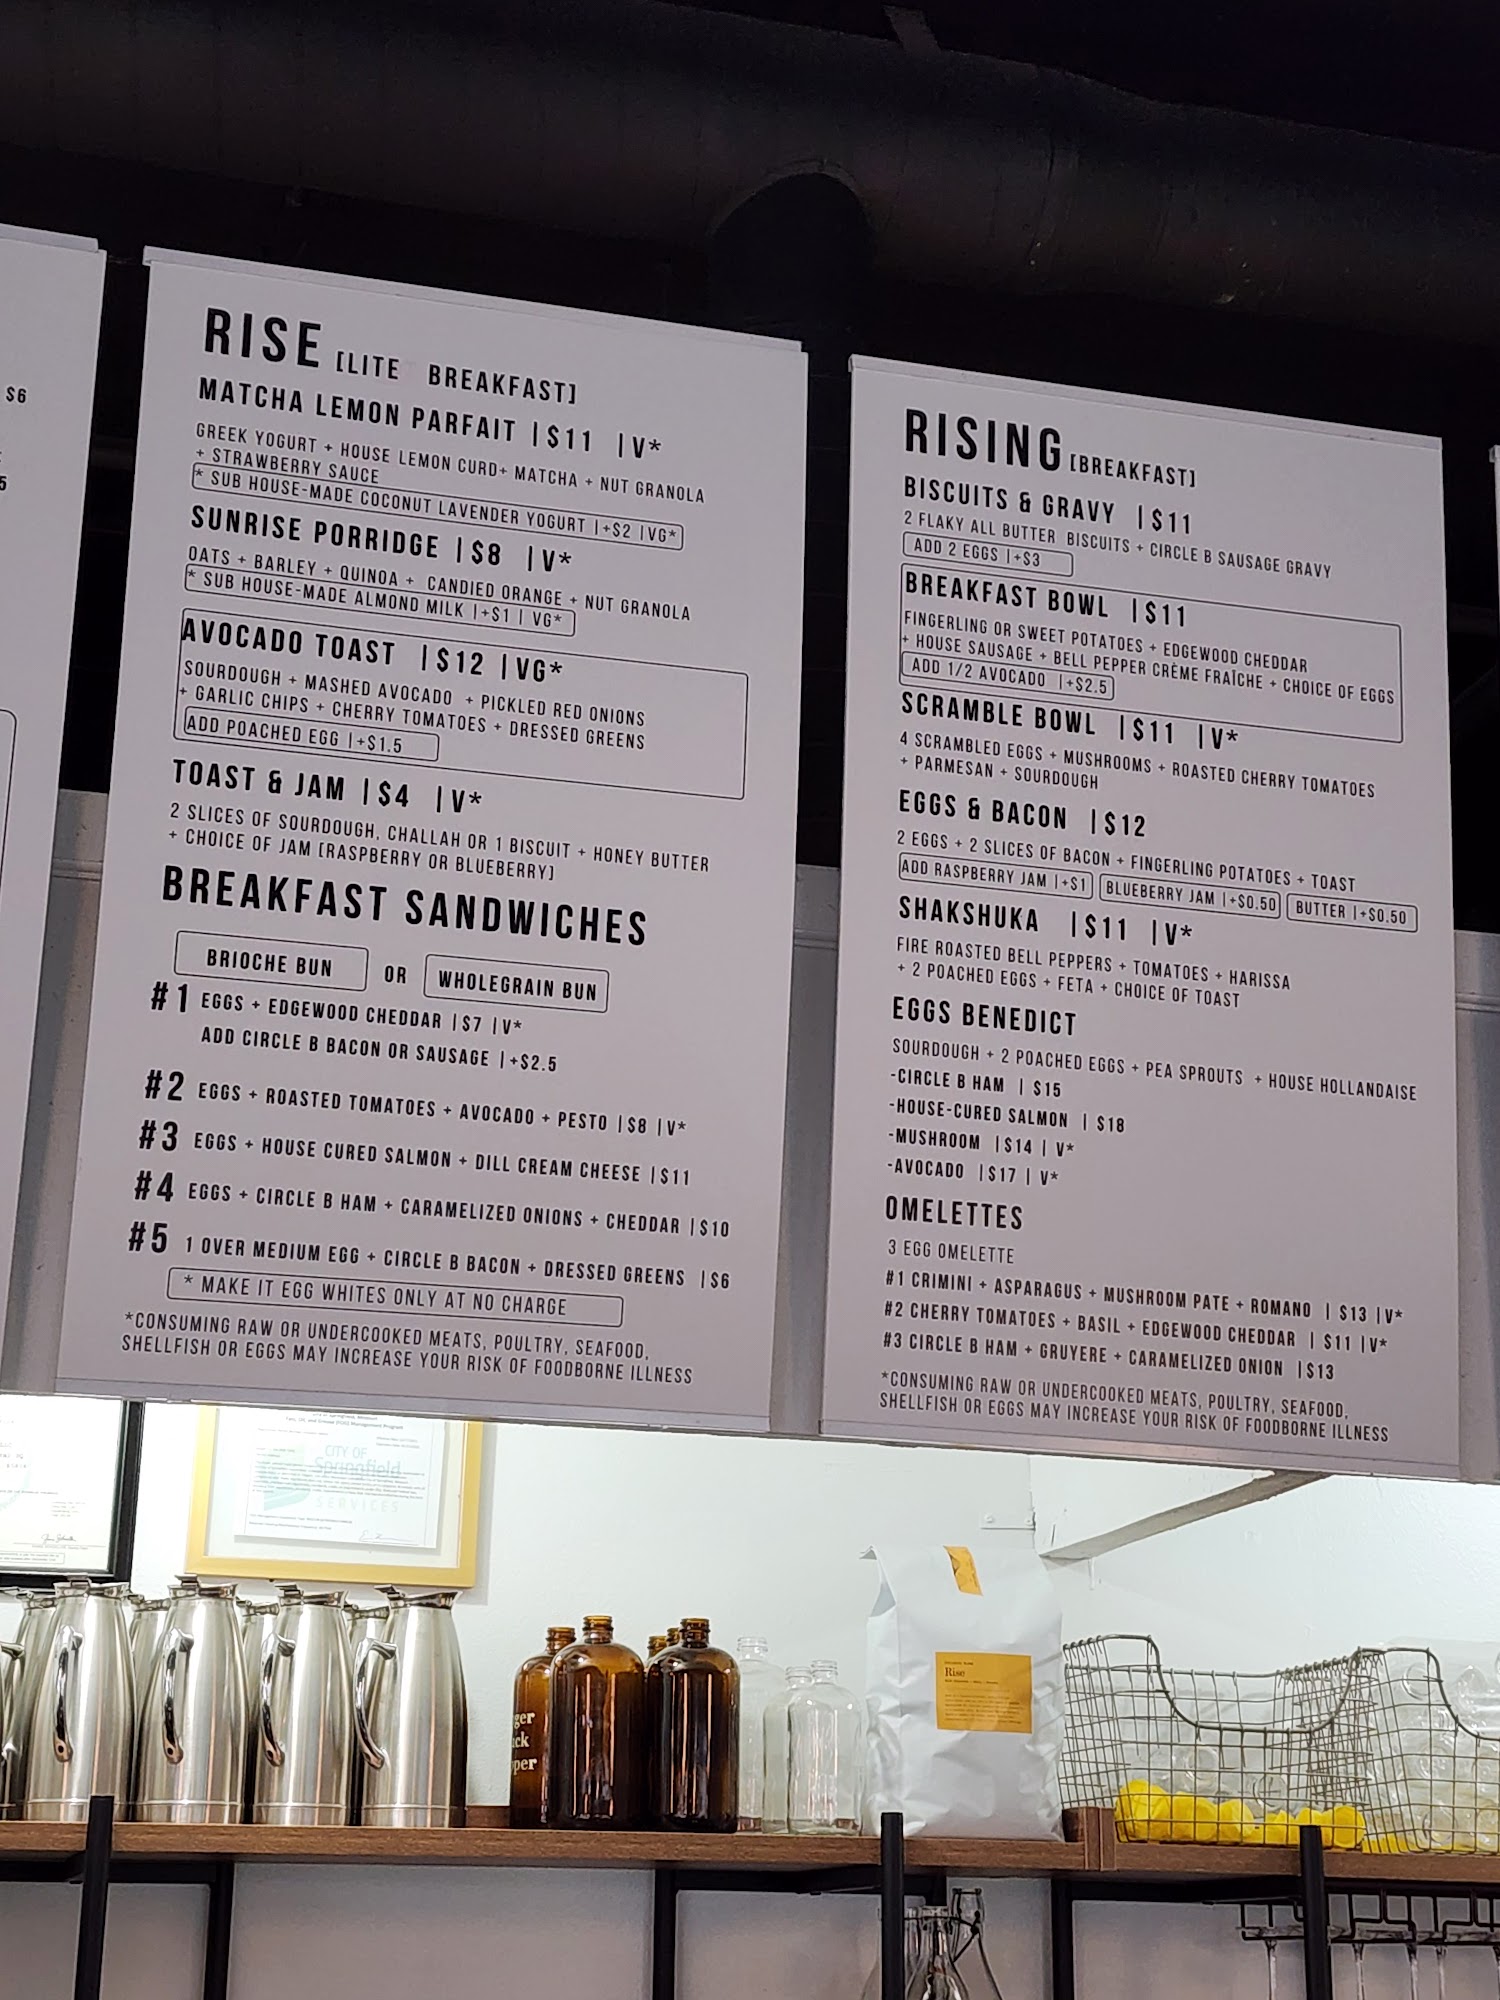 $6
5
RISE [LITE BREAKFAST]
MATCHA LEMON PARFAIT | $11 | V*
GREEK YOGURT + HOUSE LEMON CURD+ MATCHA + NUT GRANOLA
+ STRAWBERRY SAUCE
* SUB HOUSE-MADE COCONUT LAVENDER YOGURT |+$2 |VG*
SUNRISE PORRIDGE | $8 | V*
OATS + BARLEY + QUINOA + CANDIED ORANGE + NUT GRANOLA
* SUB HOUSE-MADE ALMOND MILK |+$1 | VG*
AVOCADO TOAST | $12 | VG*
SOURDOUGH + MASHED AVOCADO + PICKLED RED ONIONS
+ GARLIC CHIPS + CHERRY TOMATOES + DRESSED GREENS
ADD POACHED EGG |+$1.5
TOAST & JAM | $4 | V*
2 SLICES OF SOURDOUGH, CHALLAH OR 1 BISCUIT + HONEY BUTTER
+ CHOICE OF JAM [RASPBERRY OR BLUEBERRY]
BREAKFAST SANDWICHES
BRIOCHE BUN OR WHOLEGRAIN BUN
#1 EGGS + EDGEWOOD CHEDDAR | $7 | V*
ADD CIRCLE B BACON OR SAUSAGE |+$2.5
#2 EGGS + ROASTED TOMATOES + AVOCADO + PESTO | $8 | V*
#3 EGGS + HOUSE CURED SALMON + DILL CREAM CHEESE | $11
#4 EGGS + CIRCLE B HAM + CARAMELIZED ONIONS + CHEDDAR | $10
#5 1 OVER MEDIUM EGG + CIRCLE B BACON + DRESSED GREENS | $6
* MAKE IT EGG WHITES ONLY AT NO CHARGE
*CONSUMING RAW OR UNDERCOOKED MEATS, POULTRY, SEAFOOD,
SHELLFISH OR EGGS MAY INCREASE YOUR RISK OF FOODBORNE ILLNESS
RISING [BREAKFAST]
BISCUITS & GRAVY | $11
2 FLAKY ALL BUTTER BISCUITS + CIRCLE B SAUSAGE GRAVY
ADD 2 EGGS |+$3
BREAKFAST BOWL | $11
FINGERLING OR SWEET POTATOES + EDGEWOOD CHEDDAR
+ HOUSE SAUSAGE + BELL PEPPER CRÈME FRAÎCHE + CHOICE OF EGGS
ADD 1/2 AVOCADO |+$2.5
SCRAMBLE BOWL | $11 | V*
4 SCRAMBLED EGGS + MUSHROOMS + ROASTED CHERRY TOMATOES
+ PARMESAN + SOURDOUGH
EGGS & BACON | $12
2 EGGS + 2 SLICES OF BACON + FINGERLING POTATOES + TOAST
ADD RASPBERRY JAM |+$1 BLUEBERRY JAM |+$0.50 BUTTER |+$0.50
SHAKSHUKA | $11 | V*
FIRE ROASTED BELL PEPPERS + TOMATOES + HARISSA
+ 2 POACHED EGGS + FETA + CHOICE OF TOAST
EGGS BENEDICT
SOURDOUGH + 2 POACHED EGGS + PEA SPROUTS + HOUSE HOLLANDAISE
-CIRCLE B HAM | $15
-HOUSE-CURED SALMON | $18
-MUSHROOM | $14 | V*
-AVOCADO | $17 | V*
OMELETTES
3 EGG OMELETTE
#1 CRIMINI + ASPARAGUS + MUSHROOM PATE + ROMANO | $13 | V*
#2 CHERRY TOMATOES + BASIL + EDGEWOOD CHEDDAR | $11 | V*
#3 CIRCLE B HAM + GRUYERE + CARAMELIZED ONION | $13
*CONSUMING RAW OR UNDERCOOKED MEATS, POULTRY, SEAFOOD,
SHELLFISH OR EGGS MAY INCREASE YOUR RISK OF FOODBORNE ILLNESS
CITY OF
Springfield
SERVICES
ger
ck
per
Rise